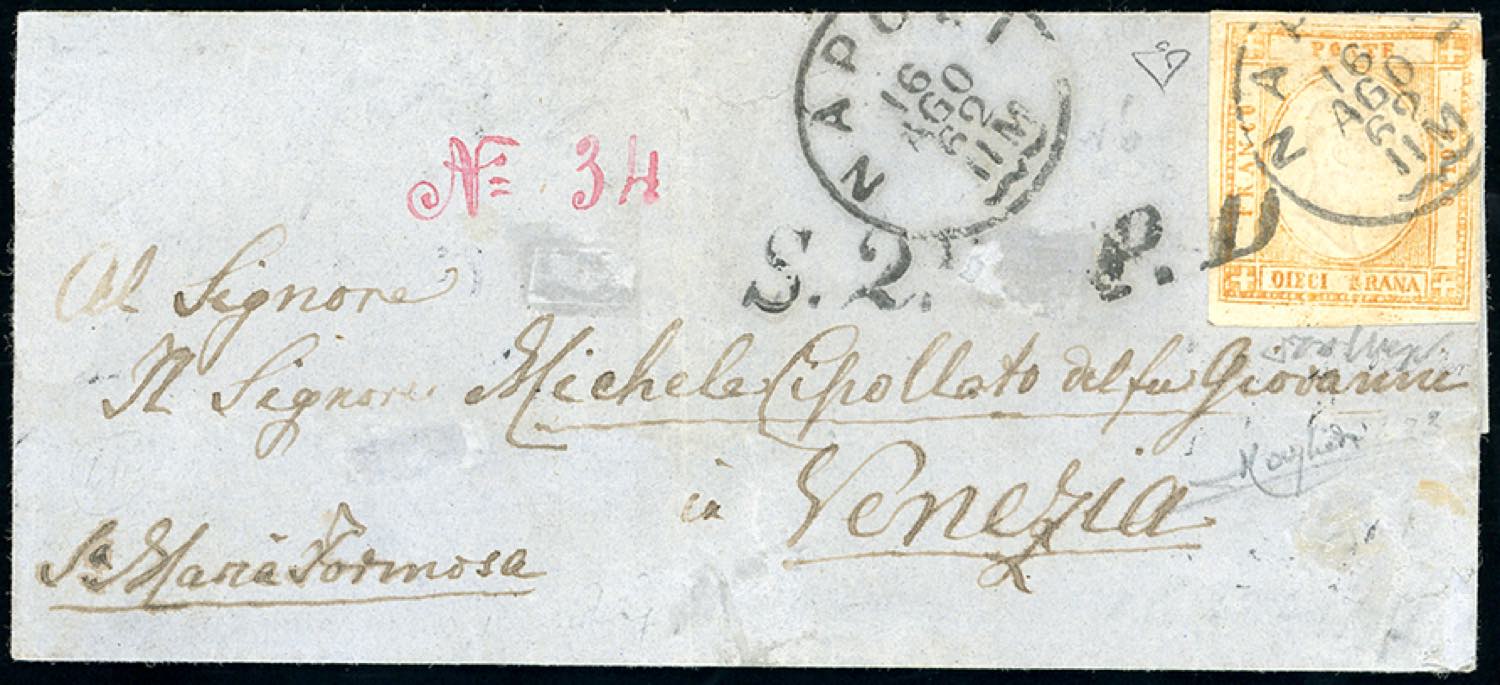 NAPO
16
AGO
62
11M
POSTE
FRANCO
DIECI GRANA
NA
16
AGO
62
11M
No 34
S. 2.
P.D
Al Signore
Il Signore Michele Cipollato del fu Giovanni
in Venezia
Sa Maria Formosa